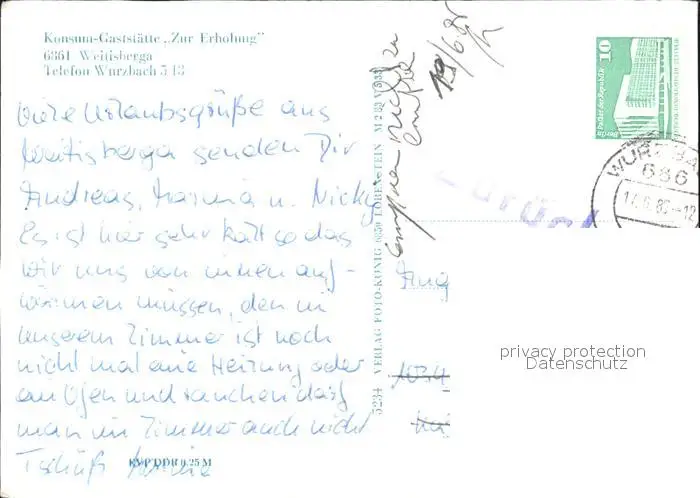 Konsum-Gaststätte „Zur Erholung"
6861 Weitisberga
Telefon Wurzbach 5 13
Viele Urlaubsgrüße aus
Weitisberga senden Dir
Andreas, u. Nicky
Es ist hier sehr kalt so das
wir uns von innen auf-
wärmen müssen, den in
unserem Zimmer ist noch
nicht mal eine Heizung oder
ein Ofen und rauchen darf
man im Zimmer auch nicht
Tschüß
EVP DDR 0,25 M
5234 VERLAG FOTO-KÖNIG 6850 LOBENSTEIN
Empfänger nicht zu
19/6.86
Zurück
10
Palast der Republik
Berlin
WURZBA
686
1034
privacy protection
Datenschutz